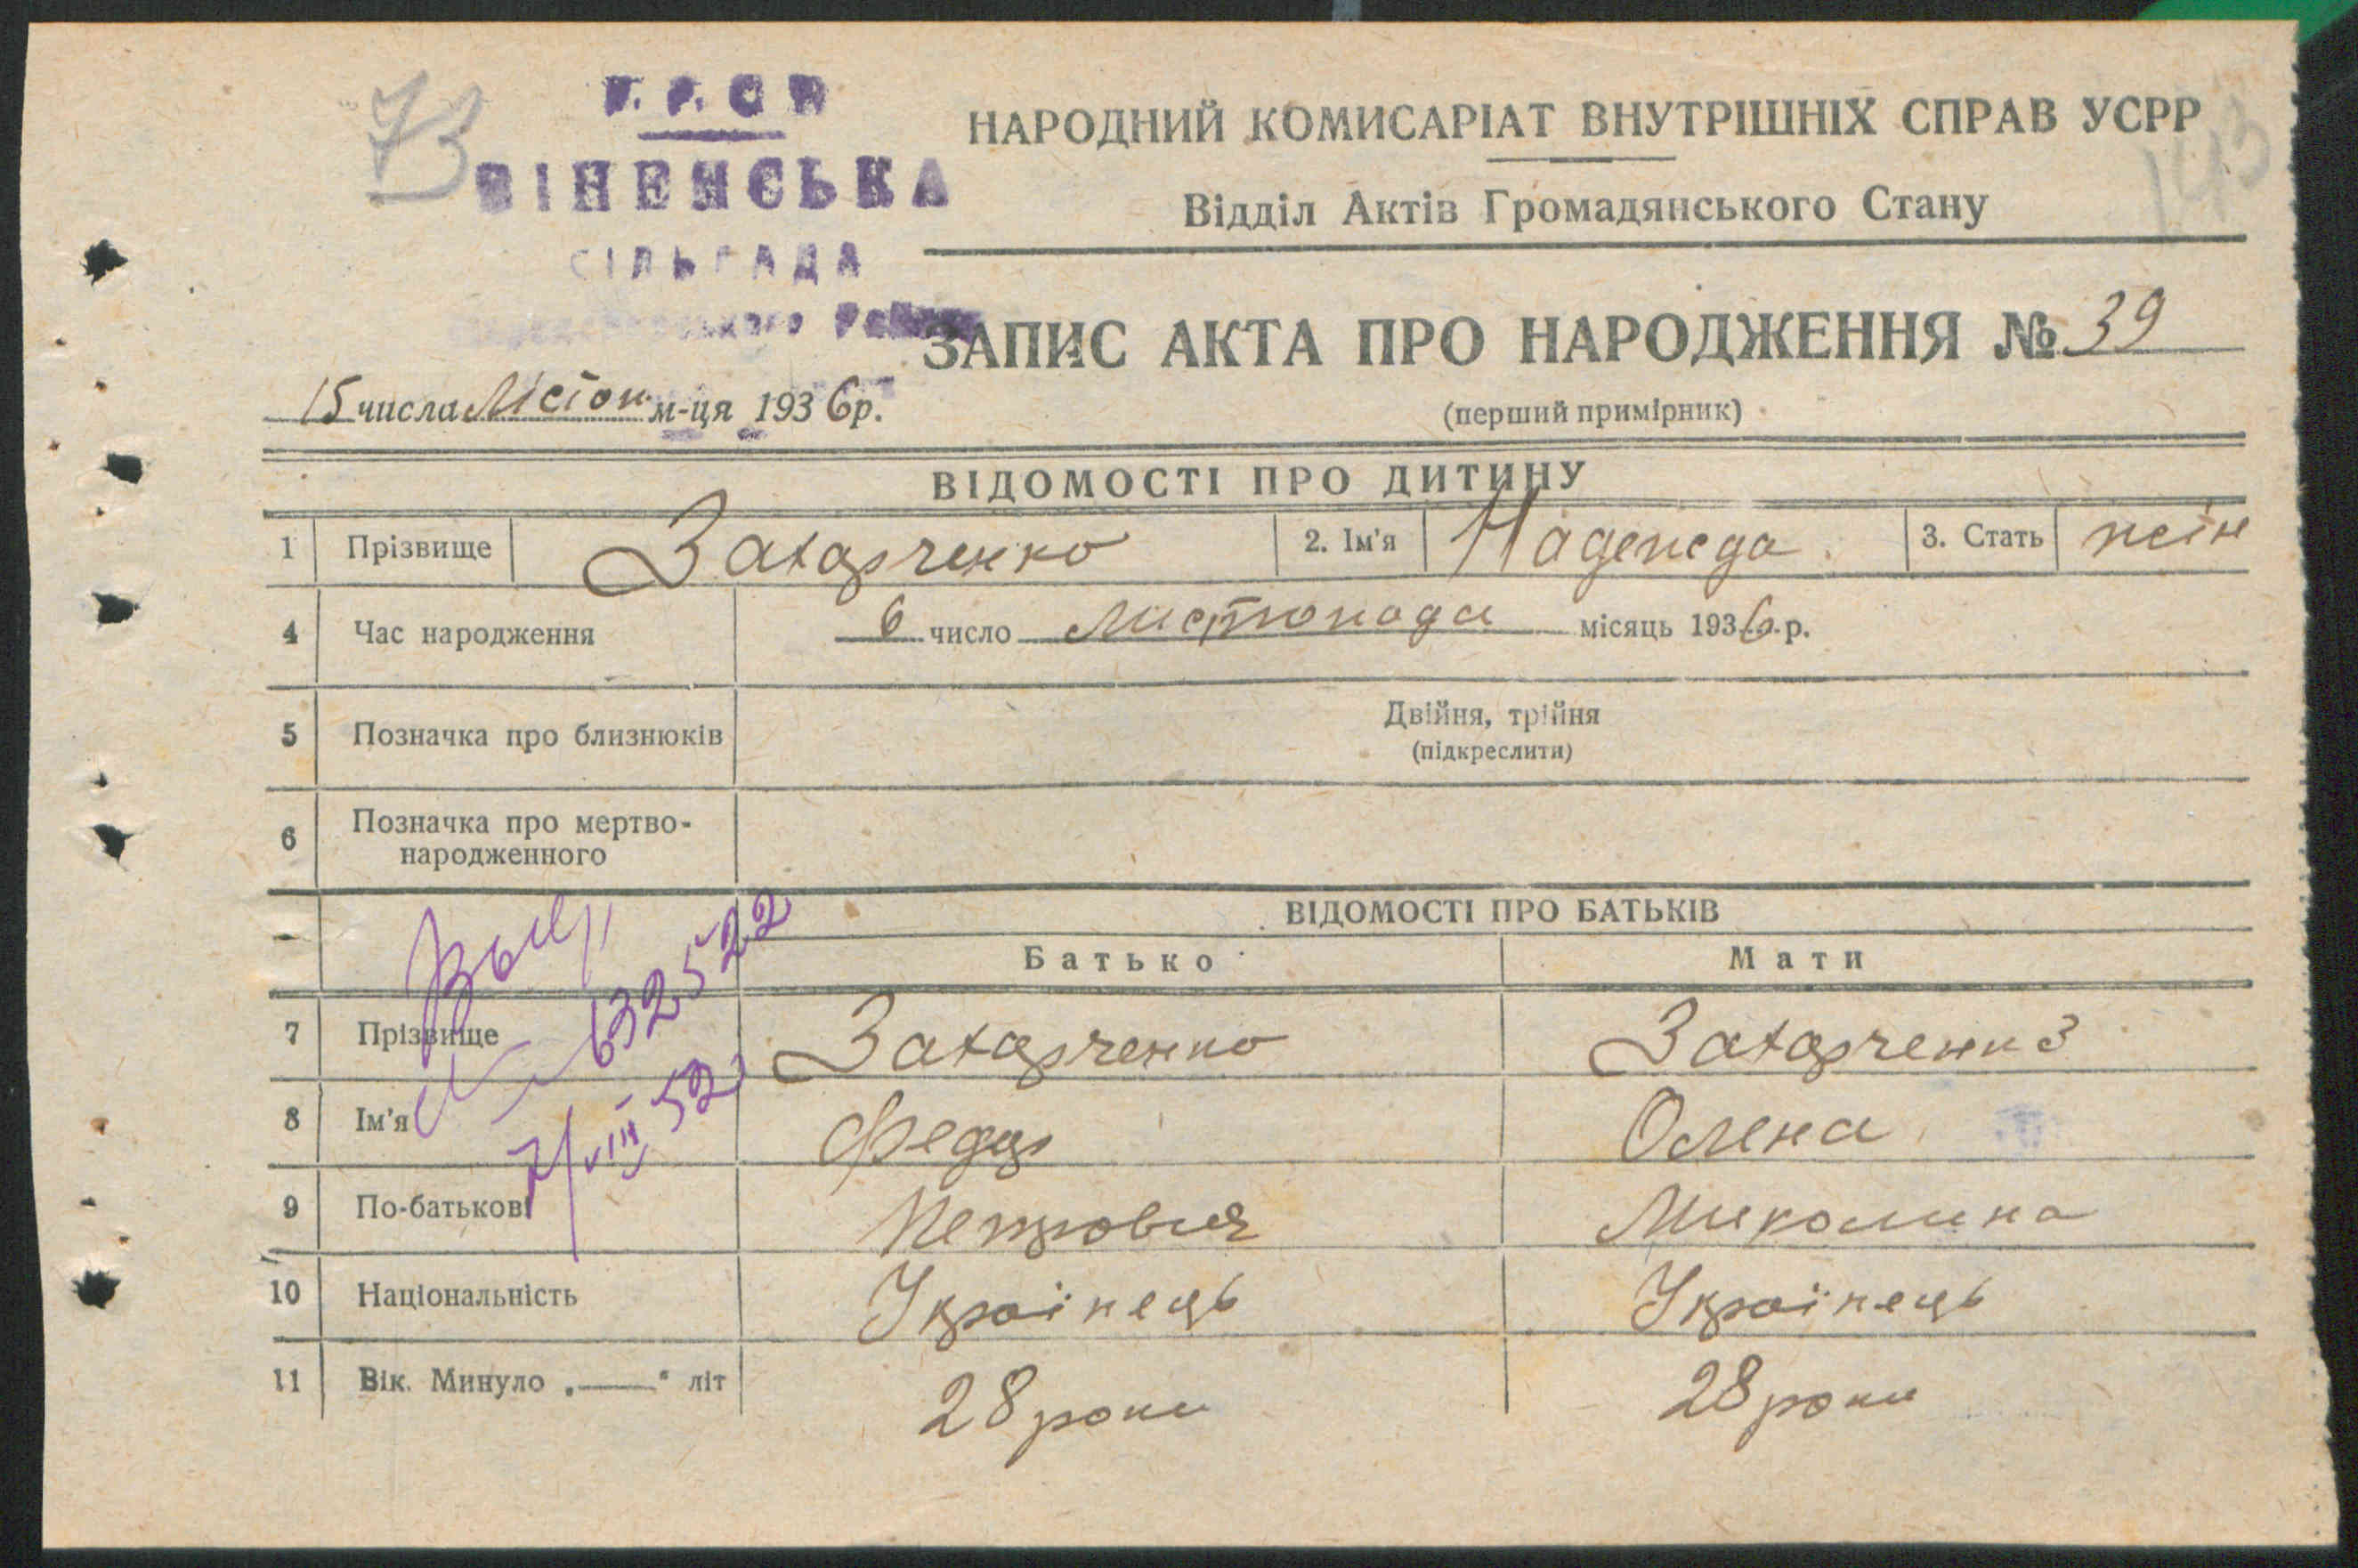 73
НАРОДНИЙ КОМИСАРІАТ ВНУТРІШНІХ СПРАВ УСРР
143
ВІНЕНСЬКА
Відділ Актів Громадянського Стану
СІЛЬРАДА
ЗАПИС АКТА ПРО НАРОДЖЕННЯ № 39
15 числа Лістоп м-ця 1936 р.
(перший примірник)
ВІДОМОСТІ ПРО ДИТИНУ
1 Прізвище Захарченко 2. Ім'я Надежда 3. Стать жін
4 Час народження 6 число листопада місяць 1936 р.
5 Позначка про близнюків Двійня, трійня
(підкреслити)
6 Позначка про мертво-
народженного
ВІДОМОСТІ ПРО БАТЬКІВ
Батько Мати
632522
7/VIII 52
7 Прізвище Захарченко Захарченко
8 Ім'я Федір Олена
9 По-батькові Петрович Миколина
10 Національність Українець Українець
11 Вік. Минуло „——“ літ 28 роки 28 роки